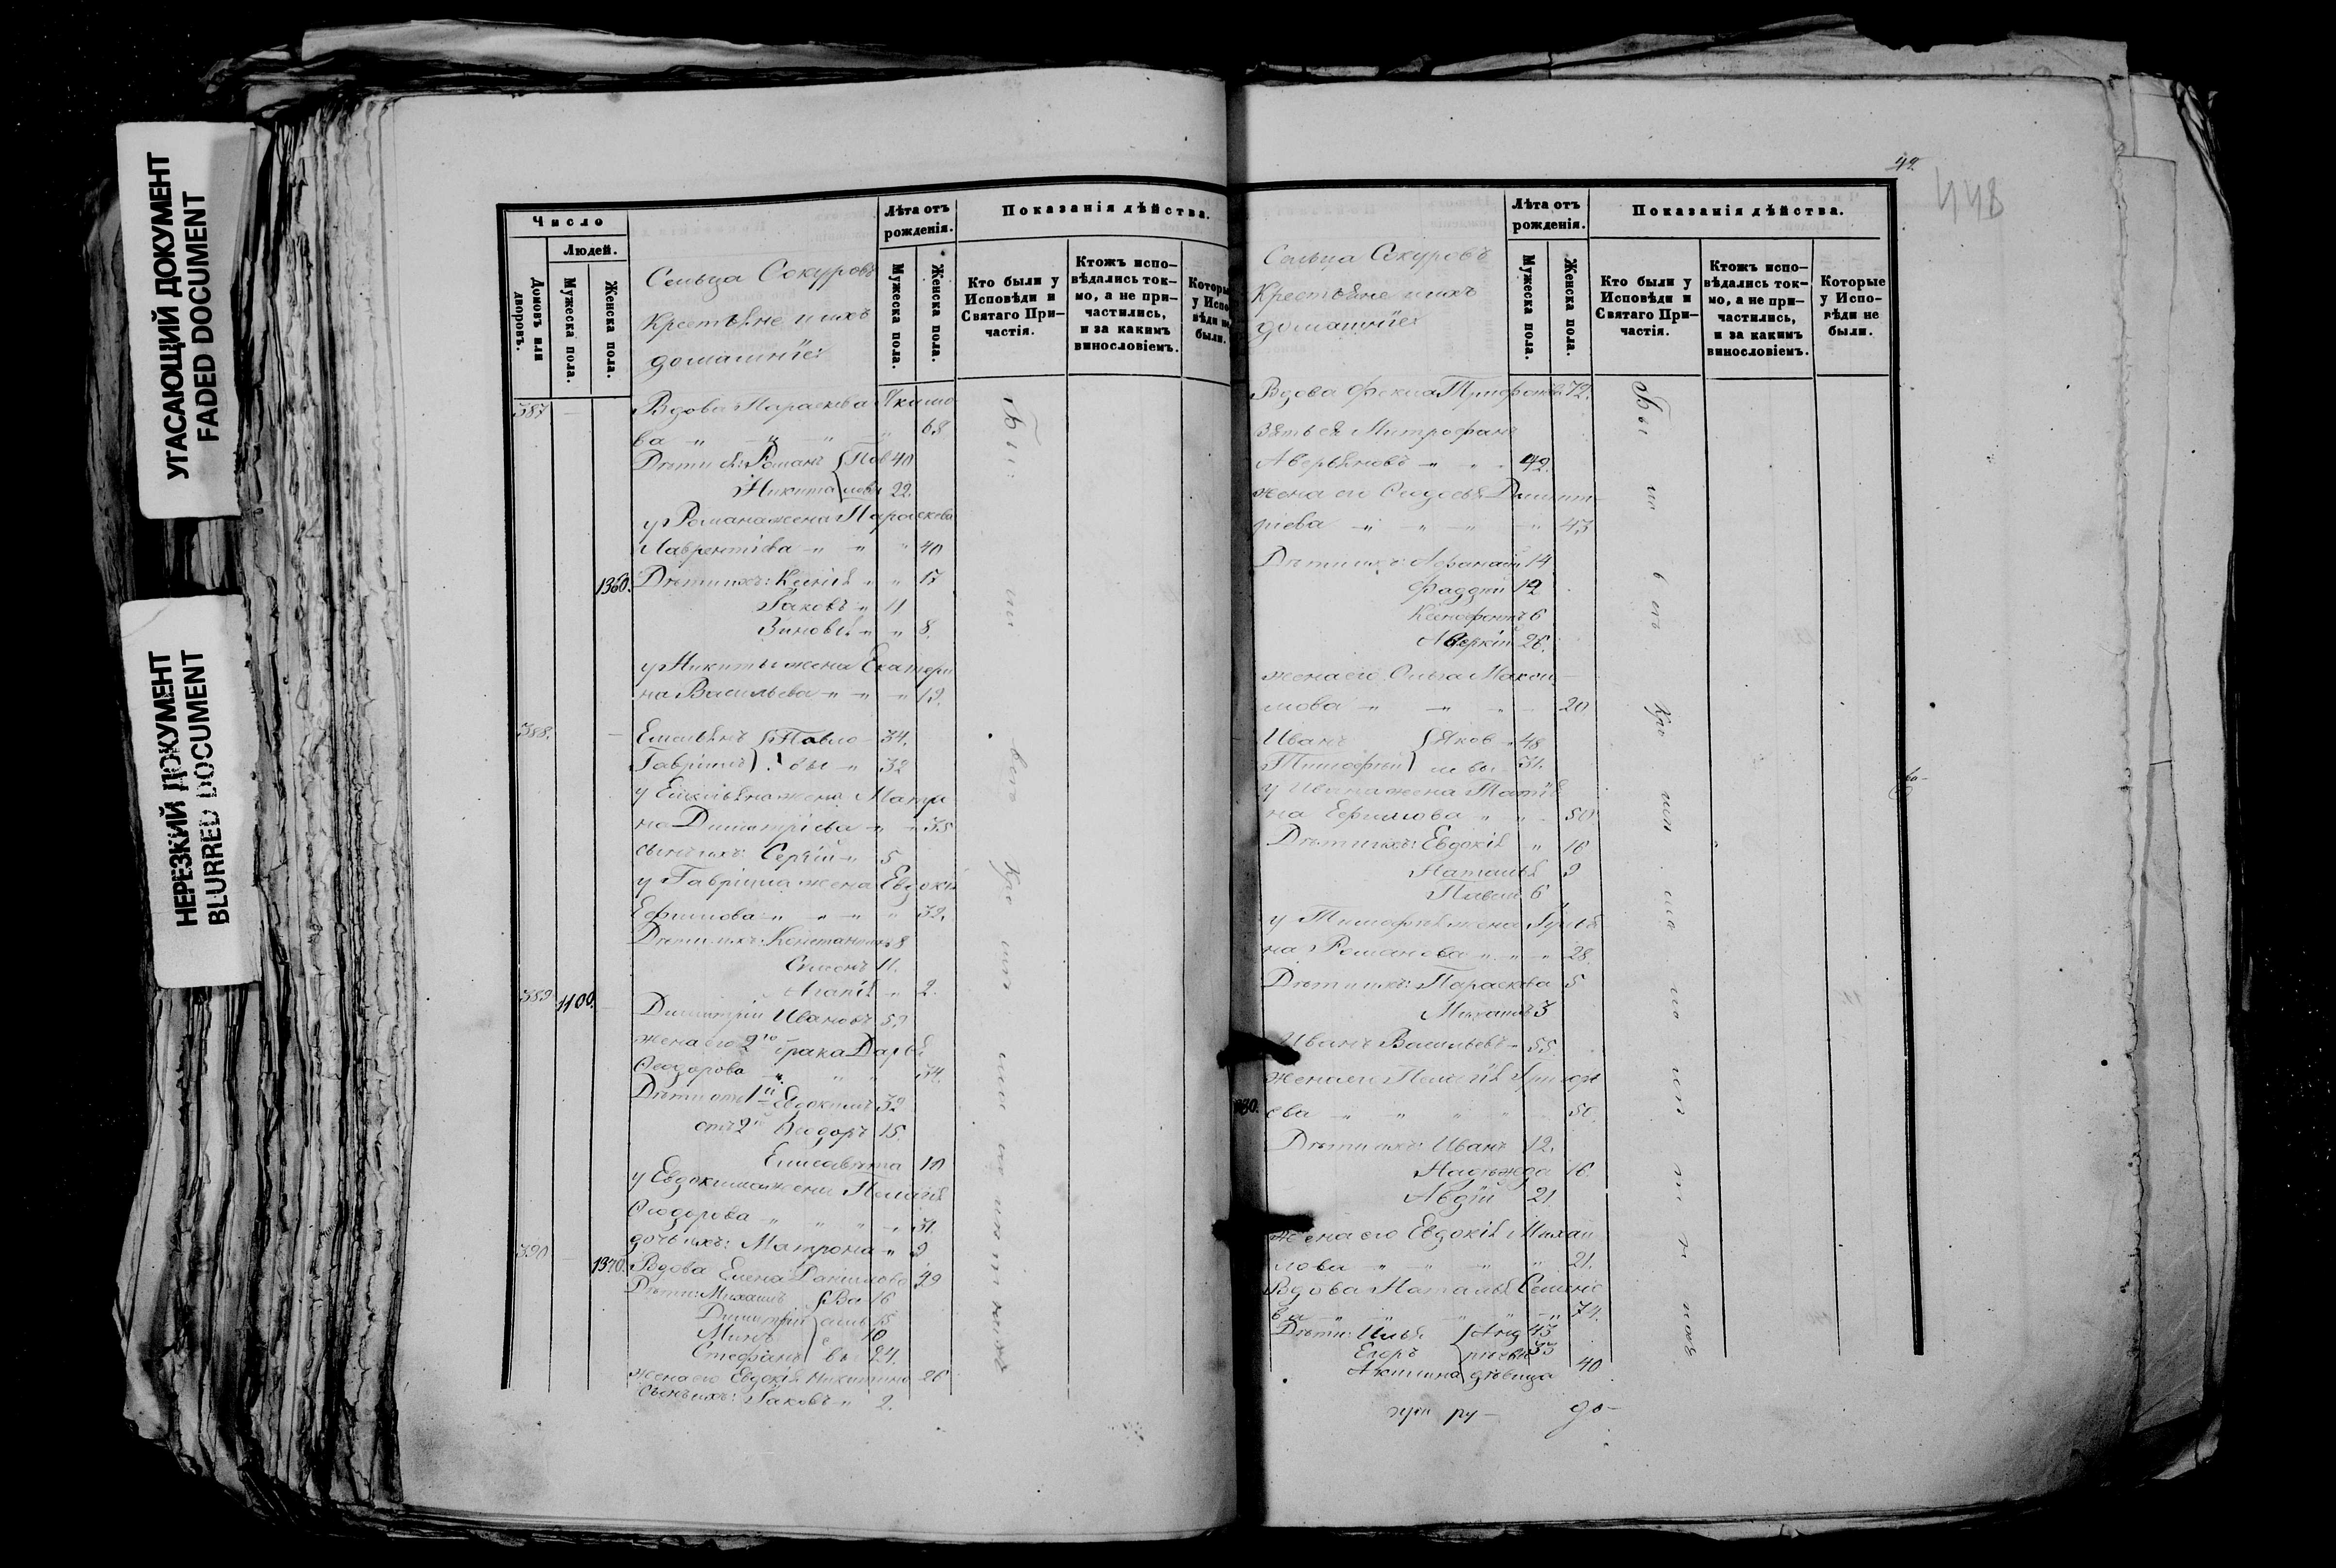 УГАСАЮЩИЙ ДОКУМЕНТ
FADED DOCUMENT
НЕРЕЗКИЙ ДОКУМЕНТ
BLURRED DOCUMENT
Число
Людей.
Домовъ или дворовъ.
Мужеска пола.
Женска пола.
Сельца Сокуровъ
Крестьяне и ихъ
домашніе
Лѣта отъ рожденія.
Мужеска пола.
Женска пола.
Показанія дѣйства.
Кто были у Исповѣди и Святаго При-
частія.
Ктожъ испо-
вѣдались ток-
мо, а не при-
частились,
и за какимъ
винословіемъ.
Которы
у Испо
вѣди не
были.
387 Вдова Параскева Акимо
ва 68
Дѣти ея: Романъ Пав 40
Никита ловы 22.
у Романа жена Параскева
Лаврентіева 40
1360. Дѣти ихъ: Ксенія 17
Іаковъ 11
Зиновія 8.
у Никиты жена Екатери
на Васильева 19.
388. Емельянъ Павло 34.
Гавріилъ вы 32
у Емельяна жена Матре
на Димитріева 35
сынъ ихъ: Сергій 5
у Гавріила жена Евдокія
Ефимова 32.
Дѣти ихъ: Константинъ 8
11.
Агапія 2.
389 1100. Димитрій Ивановъ 52
жена его 2го брака Дарья
Ѳеодорова 54.
Дѣти отъ 1й Евдокимъ 32
отъ 2й Ѳеодоръ 15.
Елисавета 10
у Евдокима жена Пелагія
Ѳеодорова 31.
дочь ихъ: Матрона 9
390 1370. Вдова Елена Данилова 49
Дѣти: Михаилъ Ва 16
Димитрій силь 15
10
Стефанъ вы 24.
жена его Евдокія Никитина 26
сынъ ихъ: Іаковъ 2.
42
44В
Сельца Сокуровъ
Крестьяне и ихъ
домашніе
Лѣта отъ рожденія.
Мужеска пола.
Женска пола.
Показанія дѣйства.
Кто были у Исповѣди и Святаго При-
частія.
Ктожъ испо-
вѣдались ток-
мо, а не при-
частились,
и за какимъ
винословіемъ.
Которые
у Испо-
вѣди не
были.
Вдова Фекла Трифонова 72.
Зять ея Митрофанъ
Аверьяновъ 42.
жена его Ѳеодосья Димит-
ріева 43
Дѣти ихъ: Афанасій 14
Фаддей 12
Ксенофонтъ 6
Аверкій 26.
жена его Ольга Макси-
мова 20
Иванъ Яков 48
Тимофей левы 31.
у Ивана жена Татія
на Ефимова 50.
Дѣти ихъ: Евдокія 16
Наталья 9
Павелъ 6
у Тимофея жена Іулія
на Романова 28.
Дѣти ихъ: Параскева 5
Михаилъ 3
Иванъ Васильевъ 55.
жена его Пелагія Григорь
ева 50.
Дѣти ихъ: Иванъ 12.
Надежда 16.
Авдій 21
жена его Евдокія Михаи
лова 21.
Вдова Наталья Семено
ва 74.
Дѣти: Илья Анд 43
Егоръ реевы 33
Акилина дѣвица 40